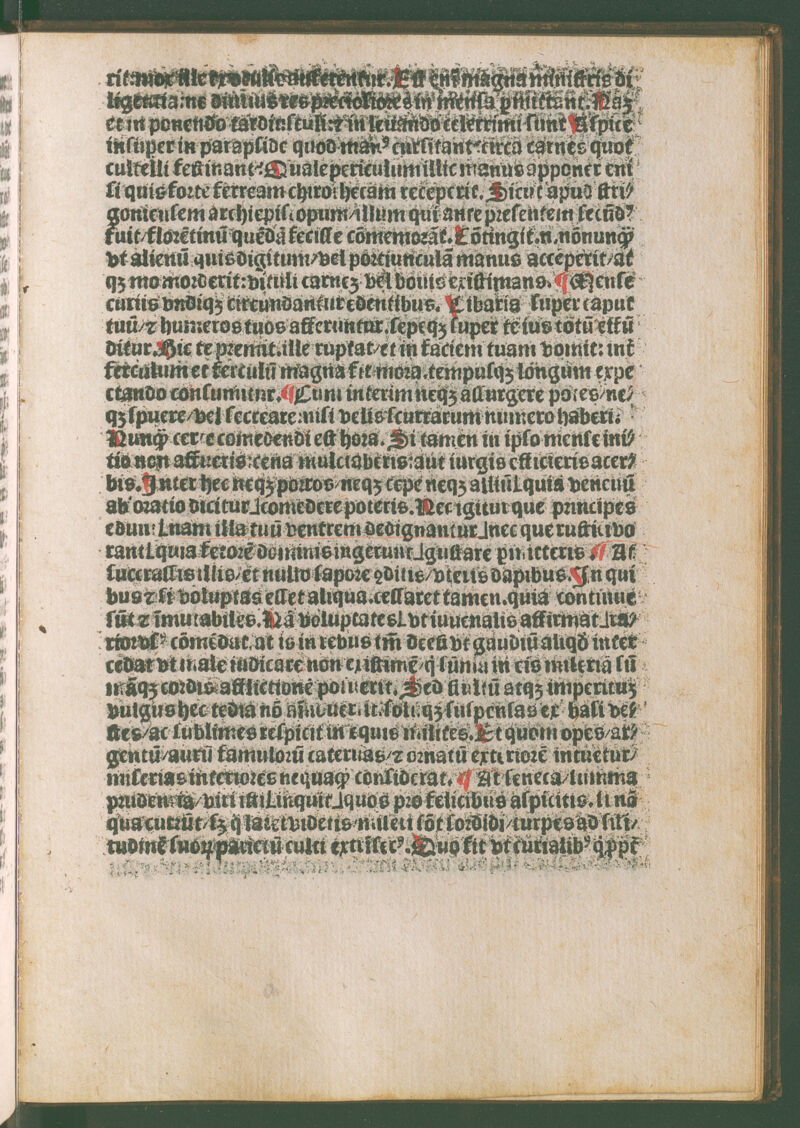 differentur. Est em̄ magna ministris di
ligentia: ne
et in ponendo tardi: sculi: ⁊ in leuando celerrimi sunt Aspice
insuper in parapside quod manꝰ cursitant⸝ circa carnes quot
cultelli festinant. Quale periculum illic manus apponer eni
si quis forte ferream chirothecam receperit. Sicut apud stri⸗
goniensem archiepiscopum/illum qui ante presentem secūdꝰ
fuit/florētinū quēdā fecisse cōmemorāt. Cōtingit.n.nōnunꝗ̃
vt alienū quis digitum/vel portiunculā manus acceperit/at
qꝫ momorderit: vituli carneꝫ vel bouis existimans. ¶ Mense
curiis vndiqꝫ circundantur edentibus. Cibaria super caput
tuū/⁊ humeros tuos afferuntur. sepeqꝫ super te ius totū effū
ditur. Hic te premit. ille ruptat/et in faciem tuam vomit: int̄
ferculum et ferculū magna fit mora. tempusqꝫ longum expe
ctando consumitur. ¶ Cum interim neqꝫ assurgere potes/ne⸗
qꝫ spuere/vel secreare: nisi velis scurrarum numero haberi.
Nunꝗ̃ certe comedendi est hora. Si tamen in ipso mense ini⸗
tio non affueris: cena mulctaberis: aut iurgis efficieris acer⸗
bis. Inter hec neqꝫ porros/neqꝫ cepe neqꝫ alliū [quia vencuū
ab oratio dicitur] comedere poteris. Nec igitur que principes
edunt [nam illa tuū ventrem dedignantur] nec que rustici vo
rant [quia fetorē dominis ingerunt] gustare permitteris ¶ At
succrassis illis/et nullo sapore ꝯditis/vteris dapibus. In qui
bus ⁊ si voluptas esset aliqua. cessaret tamen. quia continue
sūt ⁊ īmutabiles. Nā voluptates [vt iuuenalis affirmat] ra⸗
rior vsꝰ cōmēdat. at is in rebus tm̄ deest vt gaudiū aliqđ inter
cedat vt male iudicare non existimē/ꝗ sūma in eis miseriā sū
māqꝫ cordis afflictionē posuerit. Sed stultū atqꝫ imperituꝫ
vulgus hec tedia nō
stes/ac sublimes respicit in equis milites. Et quom opes/ar⸗
gentū/aurū famulorū cateruas/⁊ ornatū exteriorē intuetur/
miserias interiores nequaꝗ̃ considerat. ¶ At seneca/summa
prudentia/viri isti [inquit] quos pro felicibus aspicitis. si nō
qua currūt/sꝫ ꝗ latet videtis/miseri sōt sordidi/turpes ad sili⸗
tudinē suoꝝ parietū culti extrisecꝰ. Quo fit vt curialibꝰ ꝗppē